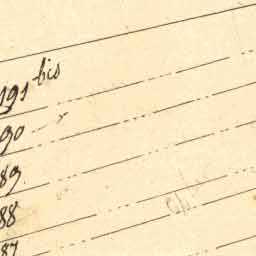 191 bis
90
89
88
87